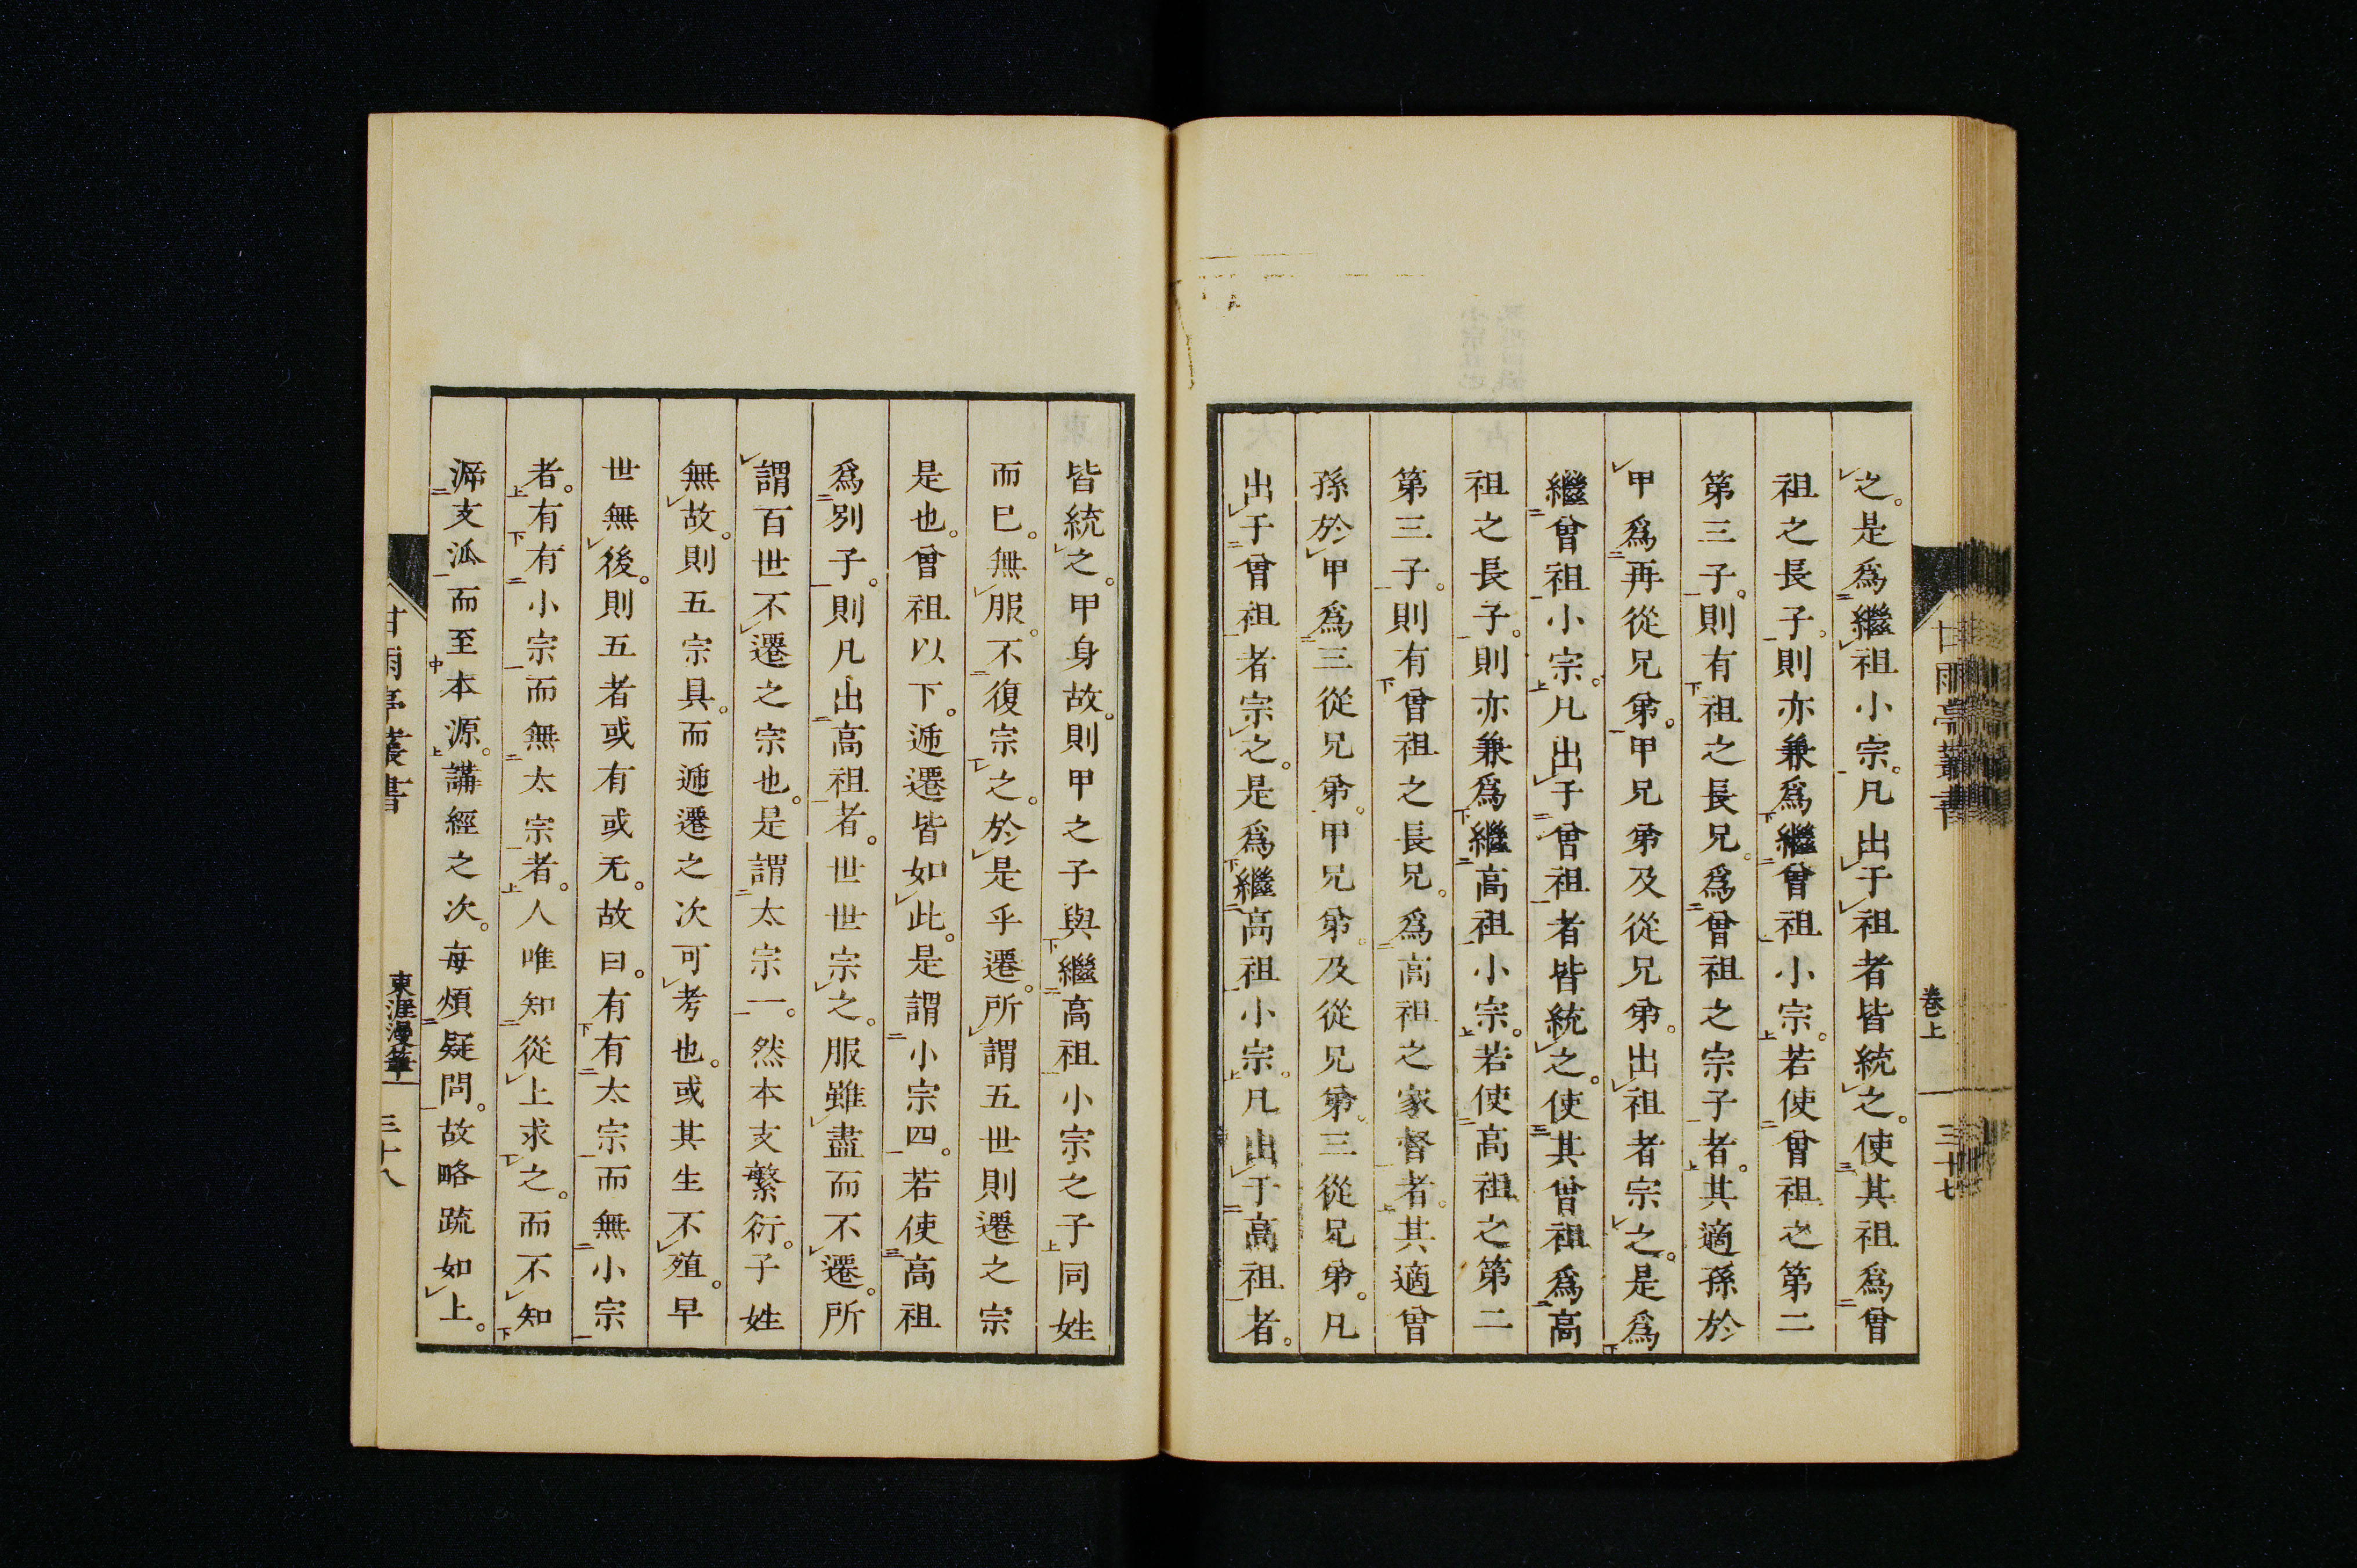 之。是爲繼祖小宗。凡出于祖者皆統之。使其祖爲曾
祖之長子。則亦兼爲繼曾祖小宗。若使曾祖之第二
第三子。則有祖之長兄。爲曾祖之宗子者。其適孫於
甲爲再從兄弟。甲兄弟及從兄弟。出祖者宗之。是爲
繼曾祖小宗。凡出于曾祖者皆統之。使其曾祖爲高
祖之長子。則亦兼爲繼高祖小宗。若使高祖之第二
第三子。則有曾祖之長兄。爲高祖之家督者。其適曾
孫於甲爲三從兄弟。甲兄弟。及從兄弟。三從兄弟。凡
出于曾祖者宗之。是爲繼高祖小宗。凡出于高祖者。
甘雨亭叢書
卷上
三十七
皆統之。甲身故。則甲之子與繼高祖小宗之子同姓
而已。無服。不復宗之。於是乎遷。所謂五世則遷之宗
是也。曾祖以下。遞遷皆如此。是謂小宗四。若使高祖
爲別子。則凡出高祖者。世世宗之。服雖盡而不遷。所
謂百世不遷之宗也。是謂太宗一。然本支繁衍。子姓
無故。則五宗具。而遞遷之次可考也。或其生不殖。早
世無後。則五者或有或无。故曰。有有太宗而無小宗
者。有有小宗而無太宗者。人唯知從上求之。而不知
泝支派而至本源。講經之次。每煩疑問。故略疏如上。
甘雨亭叢書
東涯漫筆
三十八